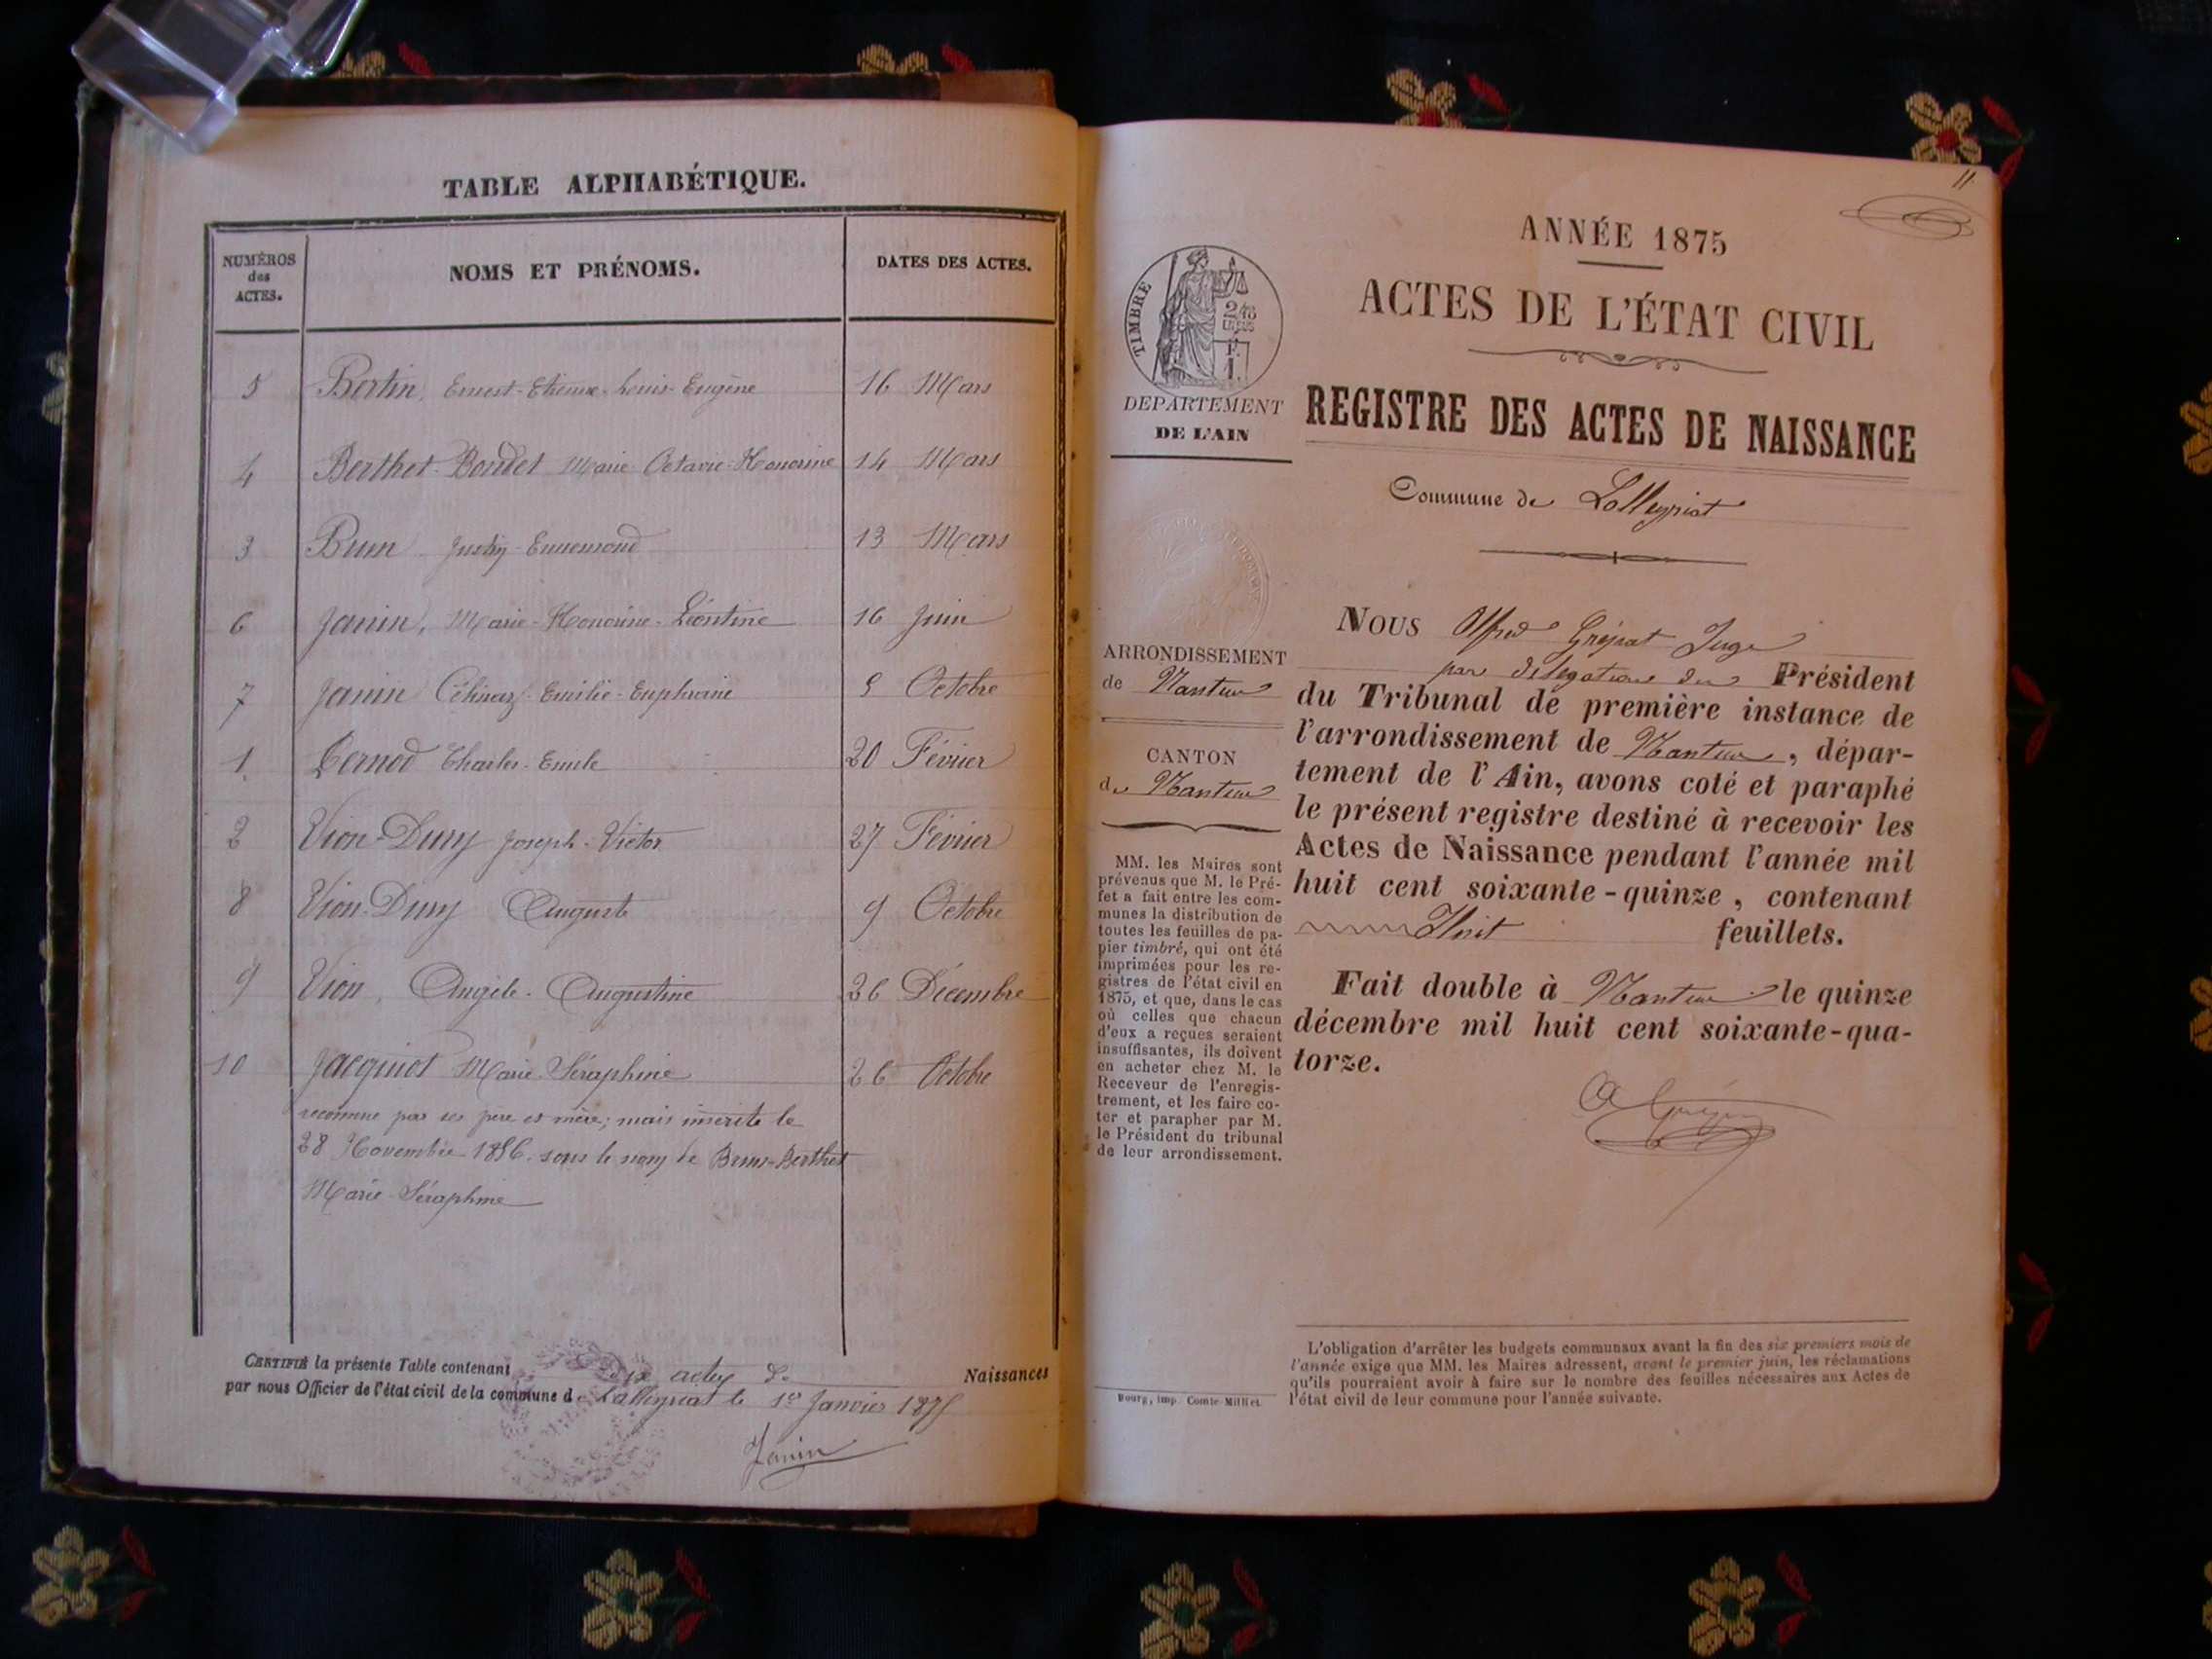 TABLE ALPHABÉTIQUE.
NUMÉROS
des
ACTES.
NOMS ET PRÉNOMS.
DATES DES ACTES.
5 Bertin, Ernest-Etienne-Louis-Eugène 16 Mars
4 Berthet-Bondet Marie Octavie-Honorine 14 Mars
3 Brun Justin-Ennemond 13 Mars
6 Janin, Marie-Honorine-Léontine 16 Juin
7 Janin Emilie-Euphrosine Octobre
1 Pernod Charles-Emile 20 Février
2 Vion-Dury Joseph-Victor 27 Février
8 Vion-Dury Auguste 9 Octobre
9 Vion, Angèle-Augustine 26 Décembre
10 Jacquiot Marie Séraphine 26 Octobre
reconnue par ses père et mère; mais inscrite le
28 Novembre 1856. sous le nom de Brun-Berthet
Marie-Séraphine
CERTIFIÉ la présente Table contenant dix actes de Naissances
par nous Officier de l'état civil de la commune de Lalleyriat le 1er Janvier 1875
Janin
11
ANNÉE 1875
ACTES DE L'ÉTAT CIVIL
REGISTRE DES ACTES DE NAISSANCE
Commune de Lalleyriat
TIMBRE
DÉPARTEMENT
DE L'AIN
ARRONDISSEMENT
de Nantua
CANTON
de Nantua
MM. les Maires sont
prévenus que M. le Pré-
fet a fait entre les com-
munes la distribution de
toutes les feuilles de pa-
pier timbré, qui ont été
imprimées pour les re-
gistres de l'état civil en
1875, et que, dans le cas
où celles que chacun
d'eux a reçues seraient
insuffisantes, ils doivent
en acheter chez M. le
Receveur de l'enregis-
trement, et les faire co-
ter et parapher par M.
le Président du tribunal
de leur arrondissement.
Bourg, imp. Comte-Milliet
NOUS Alfred Juge
par délégation du Président
du Tribunal de première instance de
l'arrondissement de Nantua, dépar-
tement de l'Ain, avons coté et paraphé
le présent registre destiné à recevoir les
Actes de Naissance pendant l'année mil
huit cent soixante-quinze, contenant
Huit feuillets.
Fait double à Nantua le quinze
décembre mil huit cent soixante-qua-
torze.
L'obligation d'arrêter les budgets communaux avant la fin des six premiers mois de
l'année exige que MM. les Maires adressent, avant le premier juin, les réclamations
qu'ils pourraient avoir à faire sur le nombre des feuilles nécessaires aux Actes de
l'état civil de leur commune pour l'année suivante.